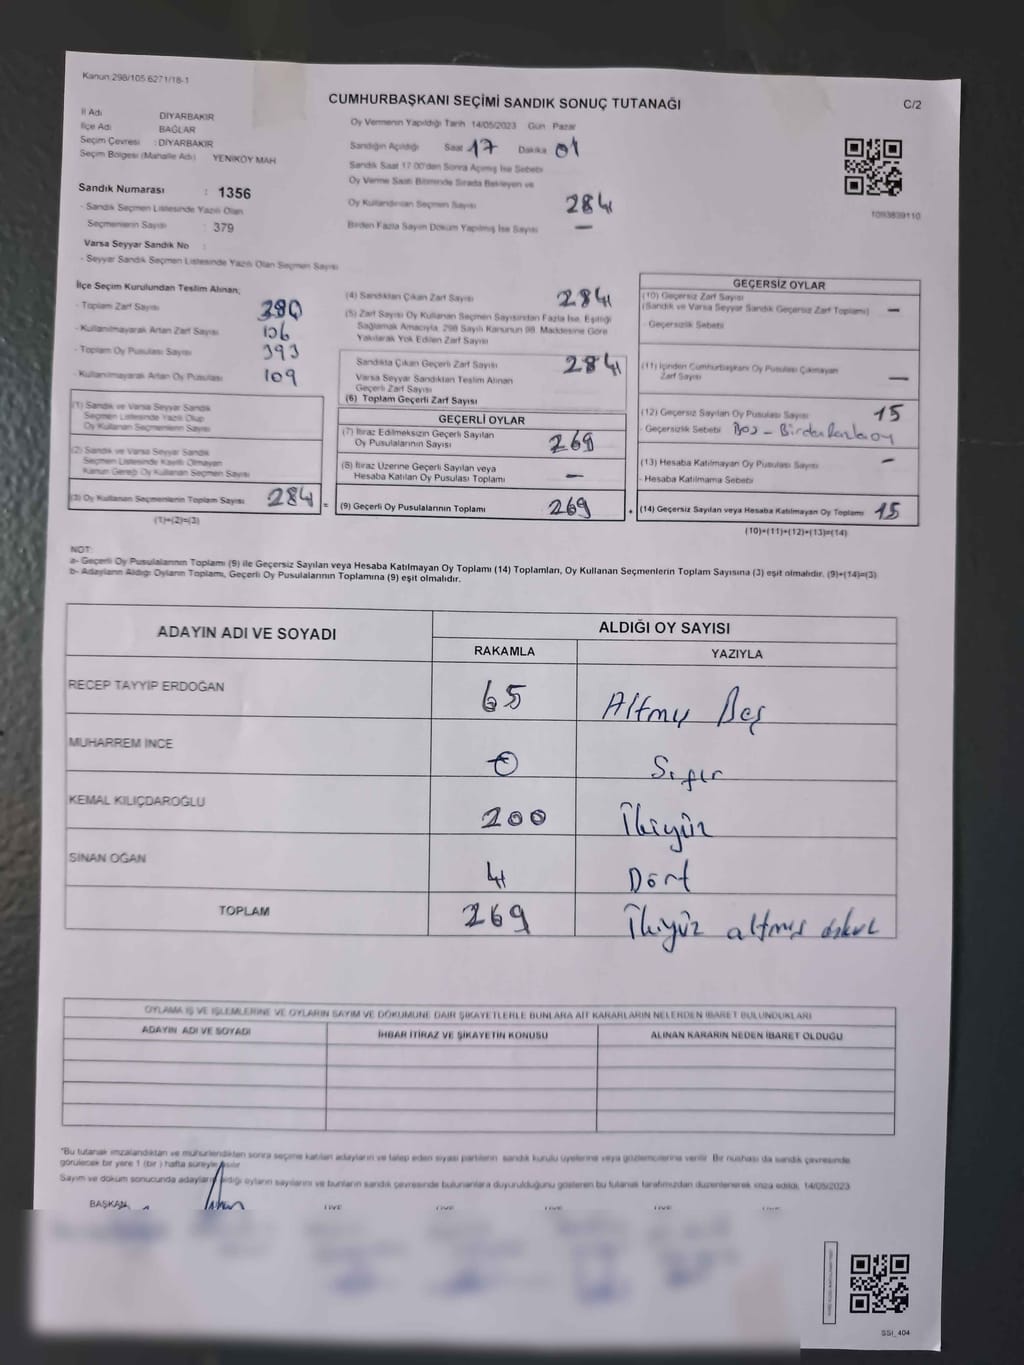 Kanun:298/105 6271/18-1
CUMHURBAŞKANI SEÇİMİ SANDIK SONUÇ TUTANAĞI
C/2
İl Adı DİYARBAKIR
İlçe Adı BAĞLAR
Seçim Çevresi : DİYARBAKIR
Seçim Bölgesi (Mahalle Adı) YENİKÖY MAH
Sandık Numarası : 1356
- Sandık Seçmen Listesinde Yazılı Olan
Seçmenlerin Sayısı : 379
Varsa Seyyar Sandık No :
- Seyyar Sandık Seçmen Listesinde Yazılı Olan Seçmen Sayısı
Oy Vermenin Yapıldığı Tarih 14/05/2023 Gün Pazar
Sandığın Açıldığı Saat 17 Dakika 01
Sandık Saat 17.00'den Sonra Açılmış İse Sebebi
Oy Verme Saati Bitiminde Sırada Bekleyen ve
Oy Kullandırılan Seçmen Sayısı 284
Birden Fazla Sayım Döküm Yapılmış İse Sayısı —
1093839110
İlçe Seçim Kurulundan Teslim Alınan;
- Toplam Zarf Sayısı 390
- Kullanılmayarak Artan Zarf Sayısı 106
- Toplam Oy Pusulası Sayısı 393
- Kullanılmayarak Artan Oy Pusulası 109
(1) Sandık ve Varsa Seyyar Sandık
Seçmen Listesinde Yazılı Olup
Oy Kullanan Seçmenlerin Sayısı
(2) Sandık ve Varsa Seyyar Sandık
Seçmen Listesinde Kayıtlı Olmayan
Kanun Gereği Oy Kullanan Seçmen Sayısı
(3) Oy Kullanan Seçmenlerin Toplam Sayısı 284 =
(1)+(2)=(3)
(4) Sandıktan Çıkan Zarf Sayısı 284
(5) Zarf Sayısı Oy Kullanan Seçmen Sayısından Fazla İse, Eşitliği
Sağlamak Amacıyla, 298 Sayılı Kanunun 98. Maddesine Göre
Yakılarak Yok Edilen Zarf Sayısı
Sandıkta Çıkan Geçerli Zarf Sayısı 284
Varsa Seyyar Sandıktan Teslim Alınan
Geçerli Zarf Sayısı
(6) Toplam Geçerli Zarf Sayısı
GEÇERLİ OYLAR
(7) İtiraz Edilmeksizin Geçerli Sayılan
Oy Pusulalarının Sayısı 269
(8) İtiraz Üzerine Geçerli Sayılan veya
Hesaba Katılan Oy Pusulası Toplamı —
(9) Geçerli Oy Pusulalarının Toplamı 269 +
GEÇERSİZ OYLAR
(10) Geçersiz Zarf Sayısı
(Sandık ve Varsa Seyyar Sandık Geçersiz Zarf Toplamı) —
- Geçersizlik Sebebi
(11) İçinden Cumhurbaşkanı Oy Pusulası Çıkmayan
Zarf Sayısı —
(12) Geçersiz Sayılan Oy Pusulası Sayısı 15
- Geçersizlik Sebebi Boş - Birden fazla oy
(13) Hesaba Katılmayan Oy Pusulası Sayısı —
- Hesaba Katılmama Sebebi
(14) Geçersiz Sayılan veya Hesaba Katılmayan Oy Toplamı 15
(10)+(11)+(12)+(13)=(14)
NOT:
a- Geçerli Oy Pusulalarının Toplamı (9) ile Geçersiz Sayılan veya Hesaba Katılmayan Oy Toplamı (14) Toplamları, Oy Kullanan Seçmenlerin Toplam Sayısına (3) eşit olmalıdır. (9)+(14)=(3)
b- Adayların Aldığı Oyların Toplamı, Geçerli Oy Pusulalarının Toplamına (9) eşit olmalıdır.
ADAYIN ADI VE SOYADI
ALDIĞI OY SAYISI
RAKAMLA YAZIYLA
RECEP TAYYİP ERDOĞAN 65 Altmış Beş
MUHARREM İNCE 0 Sıfır
KEMAL KILIÇDAROĞLU 200 İkiyüz
SİNAN OĞAN 4 Dört
TOPLAM 269 İkiyüz altmış dokuz
OYLAMA İŞ VE İŞLEMLERİNE VE OYLARIN SAYIM VE DÖKÜMÜNE DAİR ŞİKAYETLERLE BUNLARA AİT KARARLARIN NELERDEN İBARET BULUNDUKLARI
ADAYIN ADI VE SOYADI İHBAR İTİRAZ VE ŞİKAYETİN KONUSU ALINAN KARARIN NEDEN İBARET OLDUĞU
*Bu tutanak imzalandıktan ve mühürlendikten sonra seçime katılan adayların ve talep eden siyasi partilerin sandık kurulu üyelerine veya gözlemcilerine verilir. Bir nüshası da sandık çevresinde
görülecek bir yere 1 (bir ) hafta süreyle asılır.
Sayım ve döküm sonucunda adayların aldığı oyların sayılarını ve bunların sandık çevresinde bulunanlara duyurulduğunu gösteren bu tutanak tarafımızdan düzenlenerek imza edildi. 14/05/2023
BAŞKAN
SSI_404